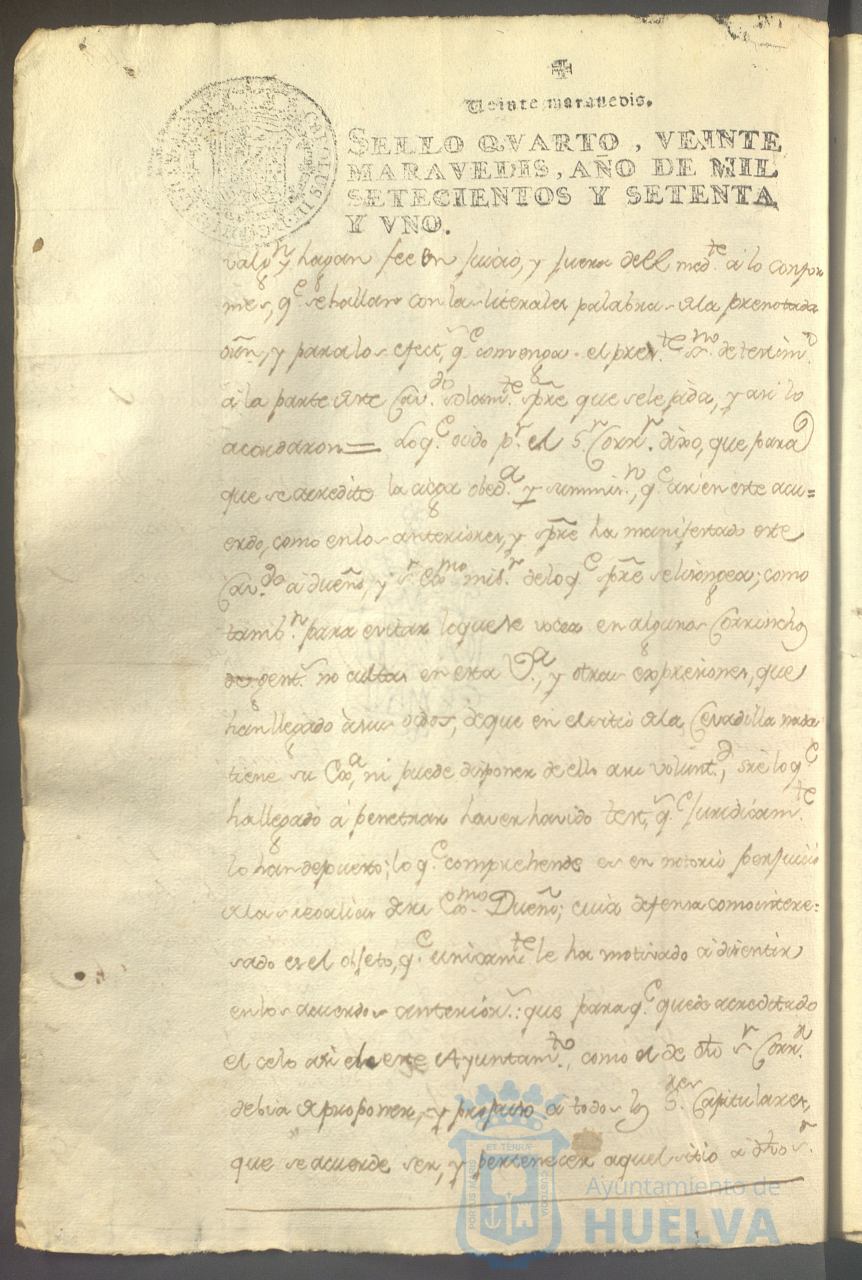 Veinte maravedis.
SELLO QVARTO, VEINTE
MARAVEDIS, AÑO DE MIL
SETECIENTOS Y SETENTA
Y VNO.
valgn y hagan fee en juicio, y fuera dell medte a lo confor
mes, qe se hallan con las literales palabras de la prenotada
orñ, y para los efects, qe convenga el prente sno de terimo
a la parte de este Cavdo solamte spre que sele pida, y asi lo
acordaron = Lo qe oido pr el Sr Corrr dixo, que para
que se acredite la obeda y summisn, qe asi en este acu=
erdo, como en los anteriores, y spre ha manifestado este
Cavdo a dueño, y sr Exmo misr de lo qe spre se lisongea; como
tambn para evitar lo que se vocea en algunos Corrinchos
de gents no cultas en esta Va, y otras expresiones, que
han llegado à sus oidos, de que en el sitio de la Cevadilla nada
tiene su Exa, ni puede disponer de ello a su voluntd, sre lo qe
ha llegado à penetrar haver havido tests, qe juridicamte
lo han depuesto; lo qe comprehende es en notorio perjuicio
de las regalias de su Exmo Dueño; cuia defensa como intere=
sado es el objeto, qe unicamte le ha motivado a disentir
en los acuerdos anteriors: que para qe quede acreditado
el celo asi de este Ayuntamto, como el de dho sr Corrr
debia de proponer, y propuso a todos los Sres Capitulares,
que se acuerde ser, y pertenecer aquel sitio a dho sr
PORTUS MARIS ET TERRAE CUSTODIA
Ayuntamiento de
HUELVA